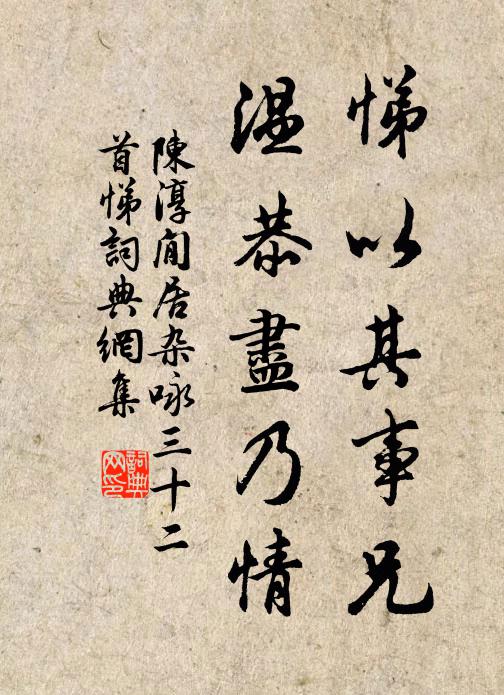 悌以其事兄
溫恭盡乃情
陳淳閒居杂咏三十二
首悌詞典網集
詞典
网印